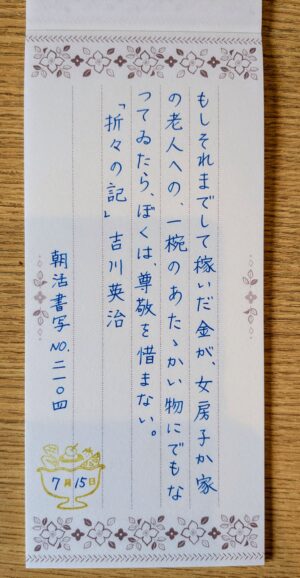 もしそれまでして稼いだ金が、女房子か家
の老人への、一椀のあたゝかい物にでもな
ってゐたら、ぼくは、尊敬を惜まない。
「折々の記」吉川英治
朝活書写 NO.二一〇四
7月15日